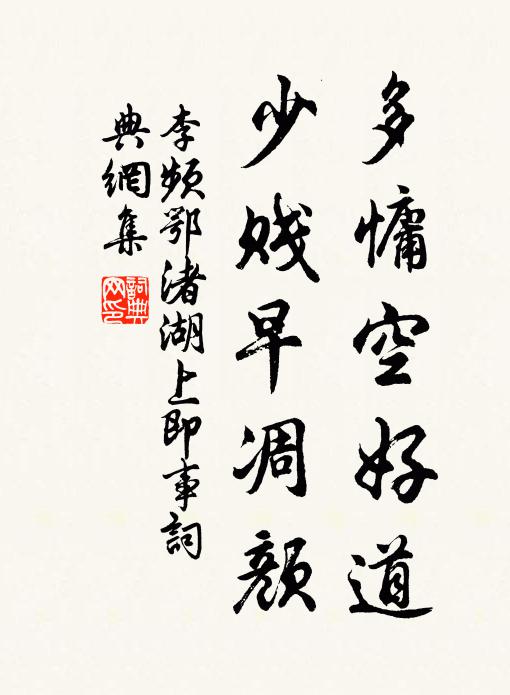 多慵空好道
少賤早凋顏
李頻鄂渚湖上即事詞
典網集
詞典
网印